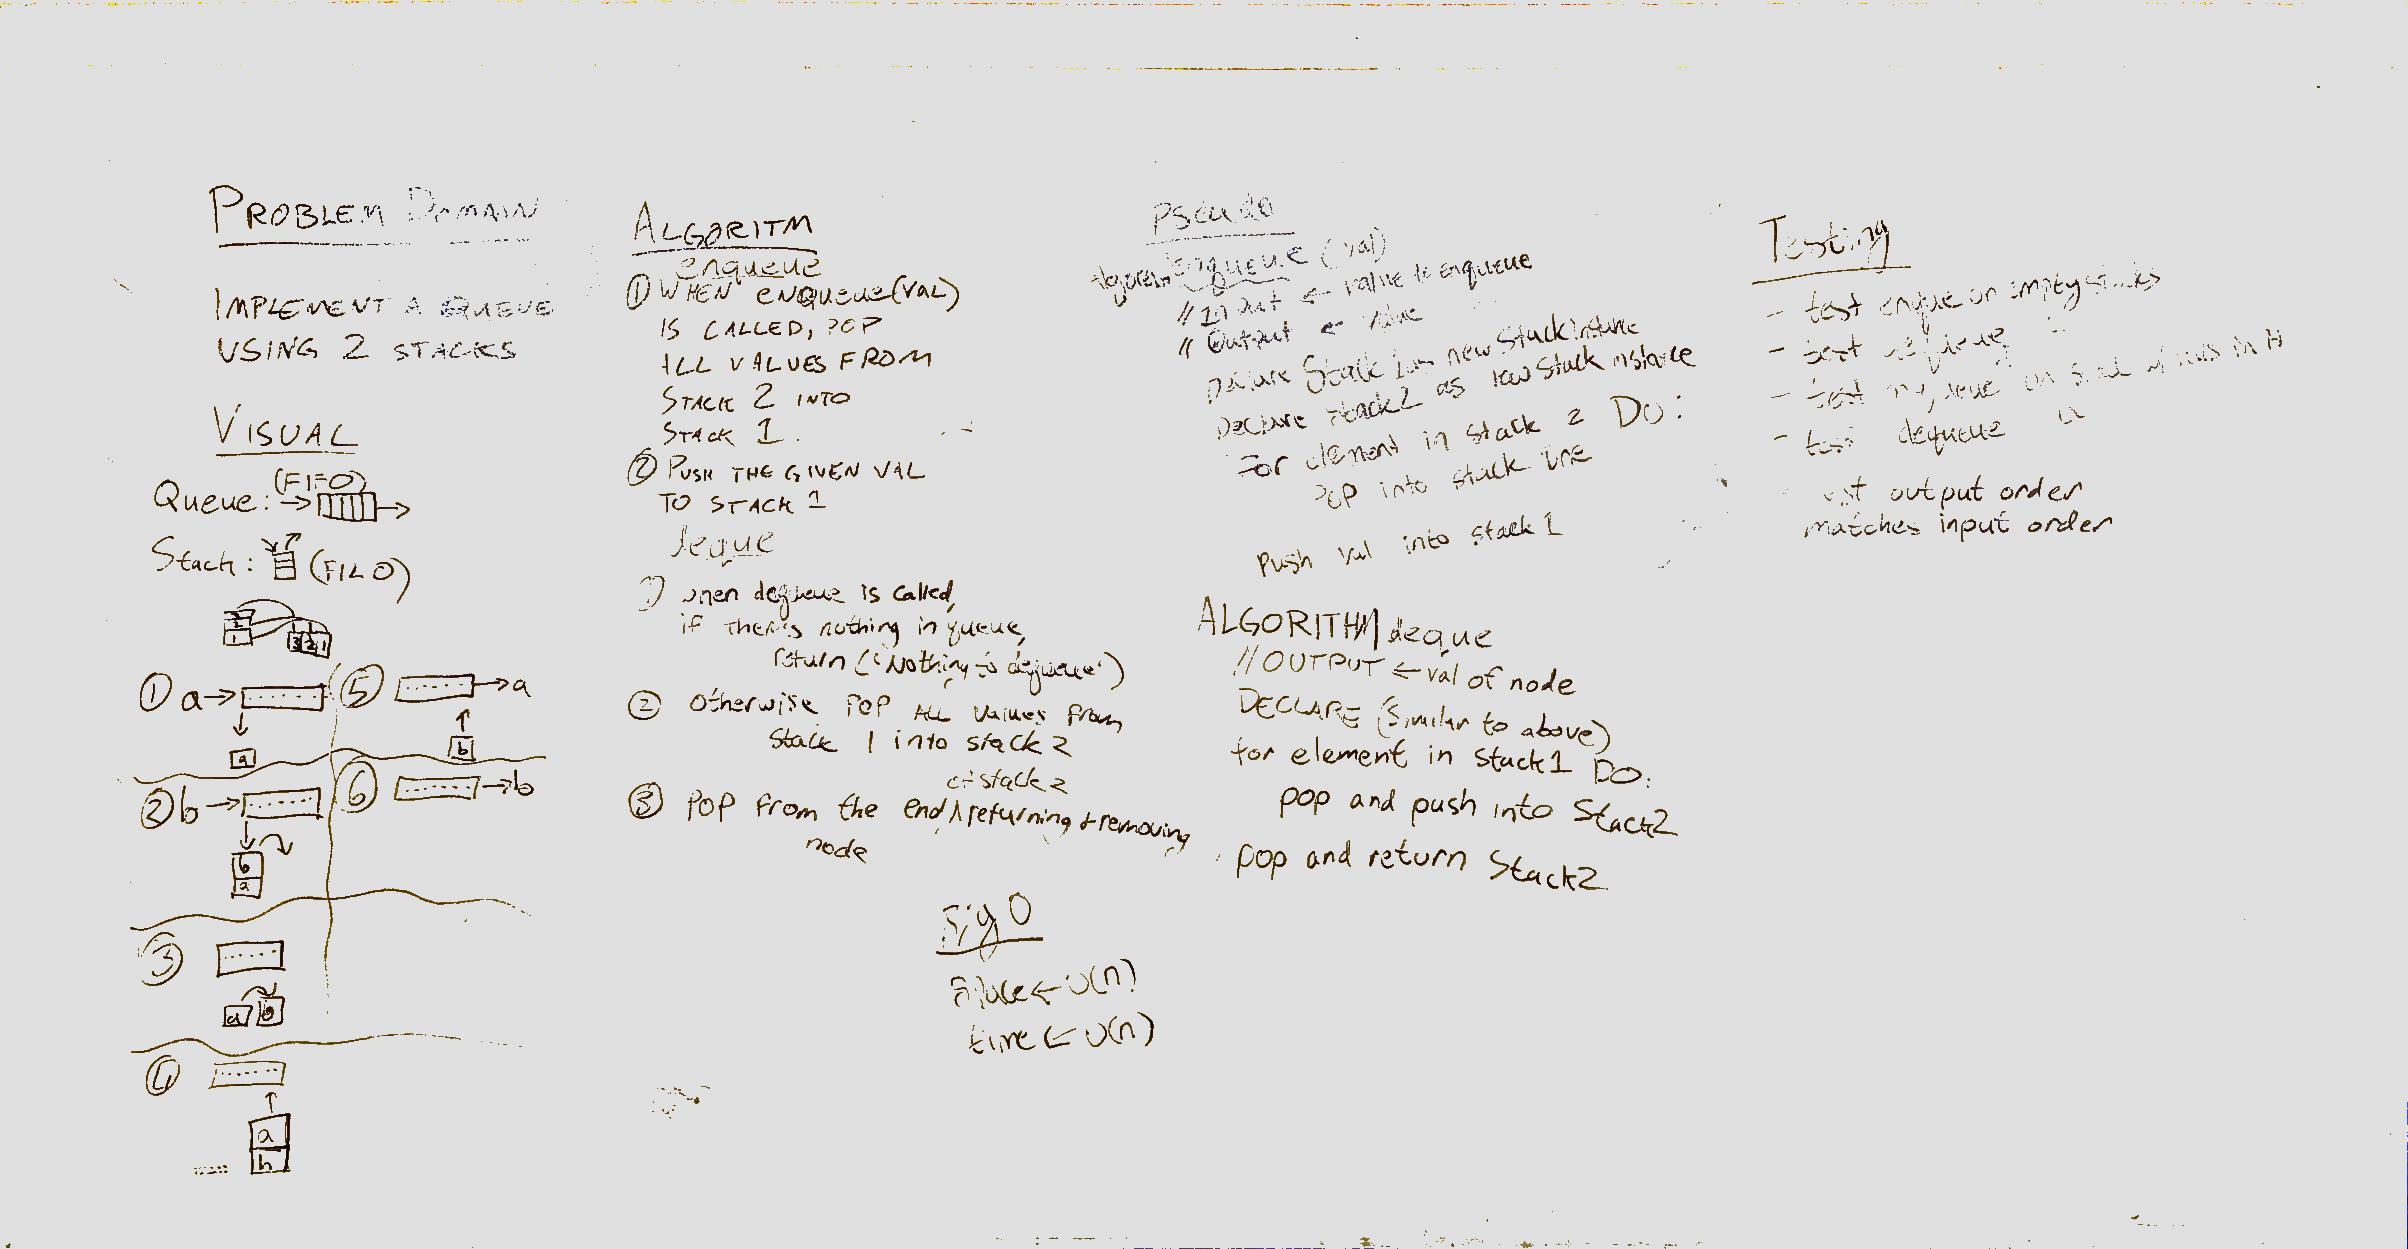 PROBLEM DOMAIN
IMPLEMENT A QUEUE
USING 2 STACKS
VISUAL
(FIFO)
Queue:
Stack: (FILO)
2
1
3 2 1
① a→
a
② b→
b
a
③
a b
④
a
b
⑤ →a
b
⑥ →b
ALGORITM
enqueue
① WHEN ENQUEUE(VAL)
IS CALLED, POP
ALL VALUES FROM
STACK 2 INTO
STACK 1.
② PUSH THE GIVEN VAL
TO STACK 1
deque
① when dequeue is called,
if there's nothing in queue,
return ("Nothing to dequeue")
② Otherwise POP ALL values from
Stack 1 into stack 2
of stack 2
③ POP from the end ∧ returning + removing
node
Big O
space ← O(n)
time ← O(n)
Pseudo
Algorithm enqueue (val)
// Input ← value to enqueue
// Output ← value
Declare Stack 1 as new Stack instance
Declare Stack2 as new Stack instance
For element in Stack 2 DO:
POP into stack one
Push val into stack 1
ALGORITHM deque
// OUTPUT ← val of node
DECLARE (similar to above)
for element in Stack1 DO:
pop and push into Stack2
pop and return Stack2
Testing
- test enque on empty stacks
- test dequeue "
- test enqueue on stack
- test dequeue "
test output order
matches input order